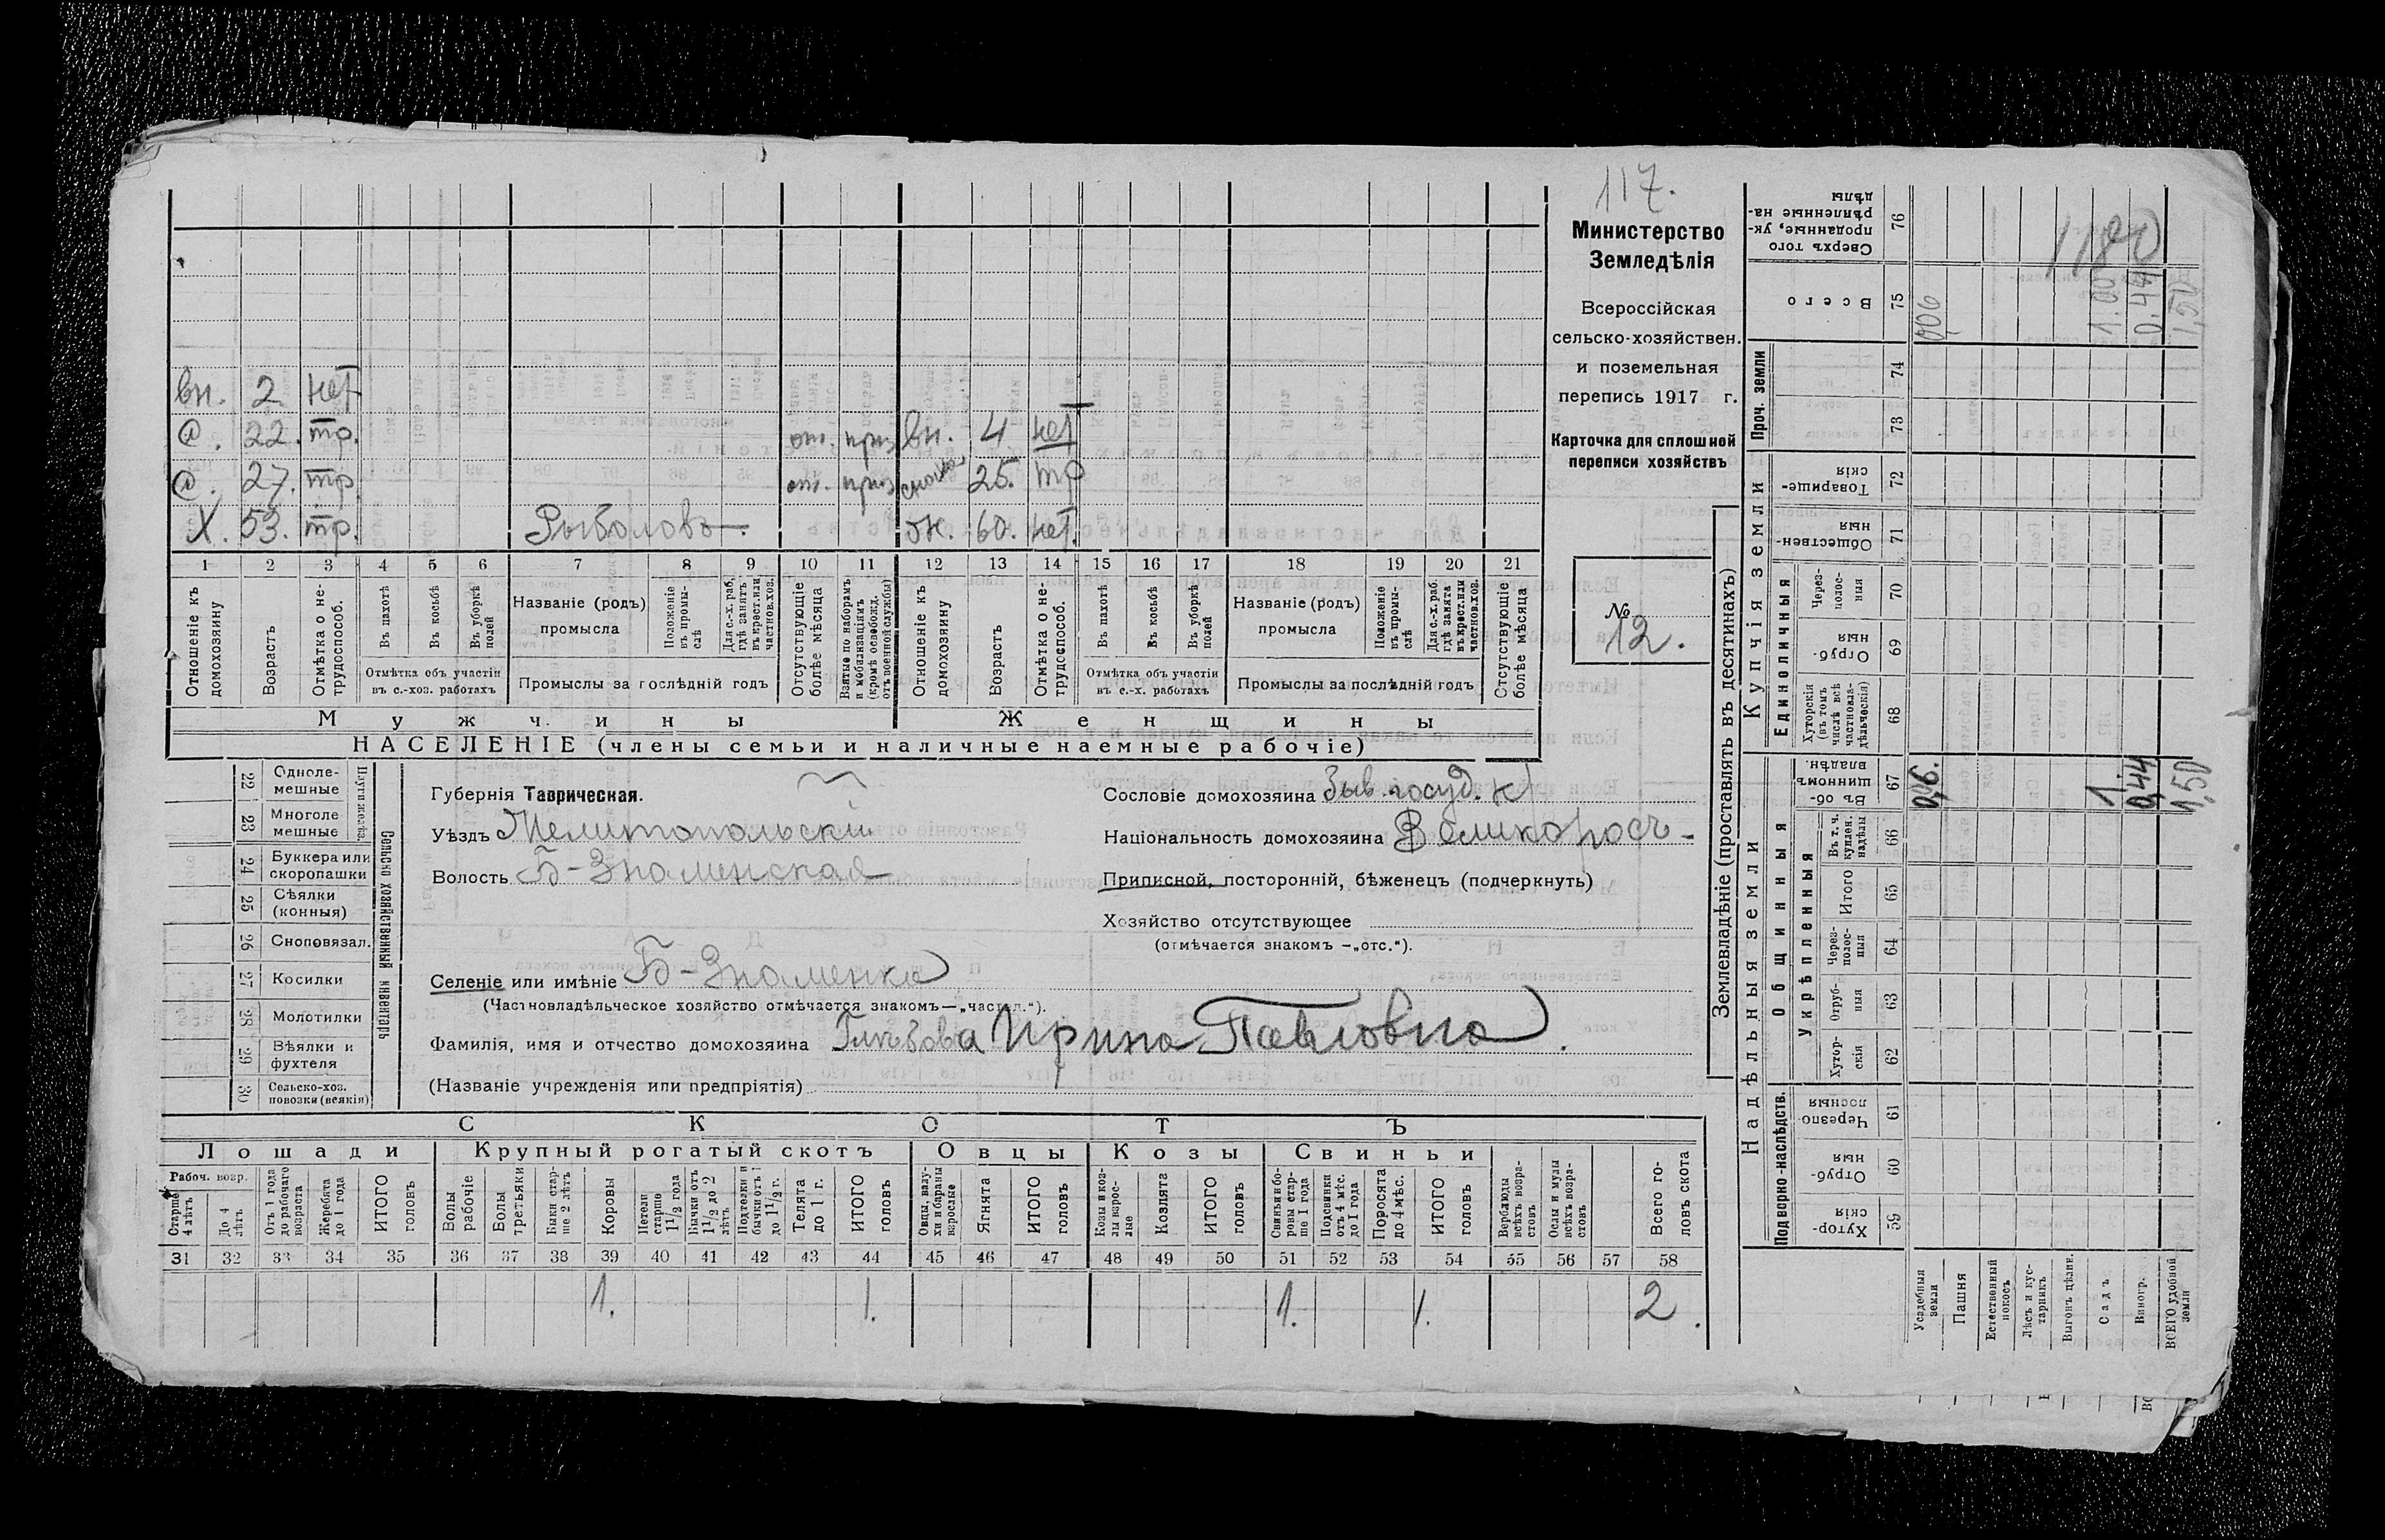 117.
Министерство
Земледѣлія
Всероссійская
сельско-хозяйствен.
и поземельная
перепись 1917 г.
Карточка для сплошной
переписи хозяйствъ
№
12.
вн. 2 нет
22. тр. от. приз вн. 4 нет
27. тр. от. приз сноха 25. тр
Х. 53. тр. Рыболовъ ж. 60. нет.
1 2 3 4 5 6 7 8 9 10 11 12 13 14 15 16 17 18 19 20 21
Отношеніе къ домохозяину
Возрастъ
Отмѣтка о нетрудоспособ.
Въ пахотѣ
Въ косьбѣ
Въ уборкѣ полей
Отмѣтка объ участіи
въ с.-хоз. работахъ
Названіе (родъ)
промысла
Положеніе въ промыслѣ
Для с.-х. раб. гдѣ занятъ въ крест. или частнов. хоз.
Промыслы за послѣдній годъ
Отсутствующіе болѣе мѣсяца
Взятые по наборамъ и мобилизаціямъ (кромѣ освобожд. отъ военной службы)
Отношеніе къ домохозяину
Возрастъ
Отмѣтка о нетрудоспособ.
Въ пахотѣ
Въ косьбѣ
Въ уборкѣ полей
Отмѣтка объ участіи
въ с.-х. работахъ
Названіе (родъ)
промысла
Положеніе въ промыслѣ
Для с.-х. раб. гдѣ занята въ крест. или частнов. хоз.
Промыслы за послѣдній годъ
Отсутствующіе болѣе мѣсяца
Мужчины Женщины
НАСЕЛЕНІЕ (члены семьи и наличные наемные рабочіе)
Сельско хозяйственный инвентарь
Плуги желѣз.
22 Однолемешные
23 Многолемешные
24 Буккера или скоропашки
25 Сѣялки (конныя)
26 Сноповязал.
27 Косилки
28 Молотилки
29 Вѣялки и фухтеля
30 Сельско-хоз. повозки (всякія)
Губернія Таврическая.
Уѣздъ Мелитопольскій
Волость Б-Знаменская
Селеніе или имѣніе Б-Знаменка
(Частновладѣльческое хозяйство отмѣчается знакомъ—„частвл.“).
Сословіе домохозяина Быв. госуд. к
Національность домохозяина Великоросъ
Приписной, посторонній, бѣженецъ (подчеркнуть)
Хозяйство отсутствующее
(отмѣчается знакомъ —„отс.“).
Фамилія, имя и отчество домохозяина Глѣбова Ирина Павловна.
(Названіе учрежденія или предпріятія)
СКОТЪ
Лошади Крупный рогатый скотъ Овцы Козы Свиньи
Рабоч. возр.
Старше 4 лѣтъ
До 4 лѣтъ
Отъ 1 года до рабочаго возраста
Жеребята до 1 года
ИТОГО головъ
Волы рабочіе
Волы третьяки
Быки старше 2 лѣтъ
Коровы
Нетели старше 1 1/2 года
Бычки отъ 1 1/2 до 2 лѣтъ
Подтелки и бычки отъ 1 до 1 1/2 г.
Телята до 1 г.
ИТОГО головъ
Овцы, валухи и бараны взрослые
Ягнята
ИТОГО головъ
Козы и козлы взрослые
Козлята
ИТОГО головъ
Свиньи и боровы старше 1 года
Подсвинки отъ 4 мѣс. до 1 года
Поросята до 4 мѣс.
ИТОГО головъ
Верблюды всѣхъ возрастовъ
Ослы и мулы всѣхъ возрастовъ
Всего головъ скота
31 32 33 34 35 36 37 38 39 40 41 42 43 44 45 46 47 48 49 50 51 52 53 54 55 56 57 58
1. 1. 1. 1. 2.
Землевладѣніе (проставлять въ десятинахъ)
Надѣльныя земли
Купчія земли
Проч. земли
Подворно-наслѣдств.
Общинныя
Укрѣпленныя
Единоличныя
Хуторскія 59
Отрубныя 60
Черезполосныя 61
Хуторскія 62
Отрубныя 63
Черезполосныя 64
Итого 65
Въ т. ч. куплен. надѣлы 66
Въ общинномъ владѣн. 67
Хуторскія (въ томъ числѣ всѣ частновладѣльческія) 68
Отрубныя 69
Черезполосныя 70
Общественныя 71
Товарищескія 72
73
74
Всего 75
Сверхъ того проданные, укрѣпленные надѣлы 76
Усадебныя земли 0,06. 0,06
Пашня
Естественный покосъ
Лѣсъ и кустарникъ
Выгонъ цѣлин.
Садъ 1, 1.00
Виногр. 0,44 0.44
ВСЕГО удобной земли 1,50 1,50
1180